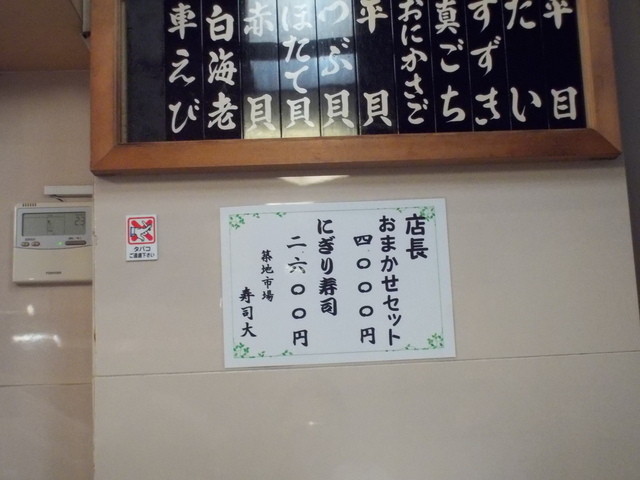 平目
たい
すずき
真ごち
おにかさご
平貝
つぶ貝
ほたて貝
赤貝
白海老
車えび
店長
おまかせセット
四〇〇〇円
にぎり寿司
二六〇〇円
築地市場
寿司大
タバコ
ご遠慮下さい